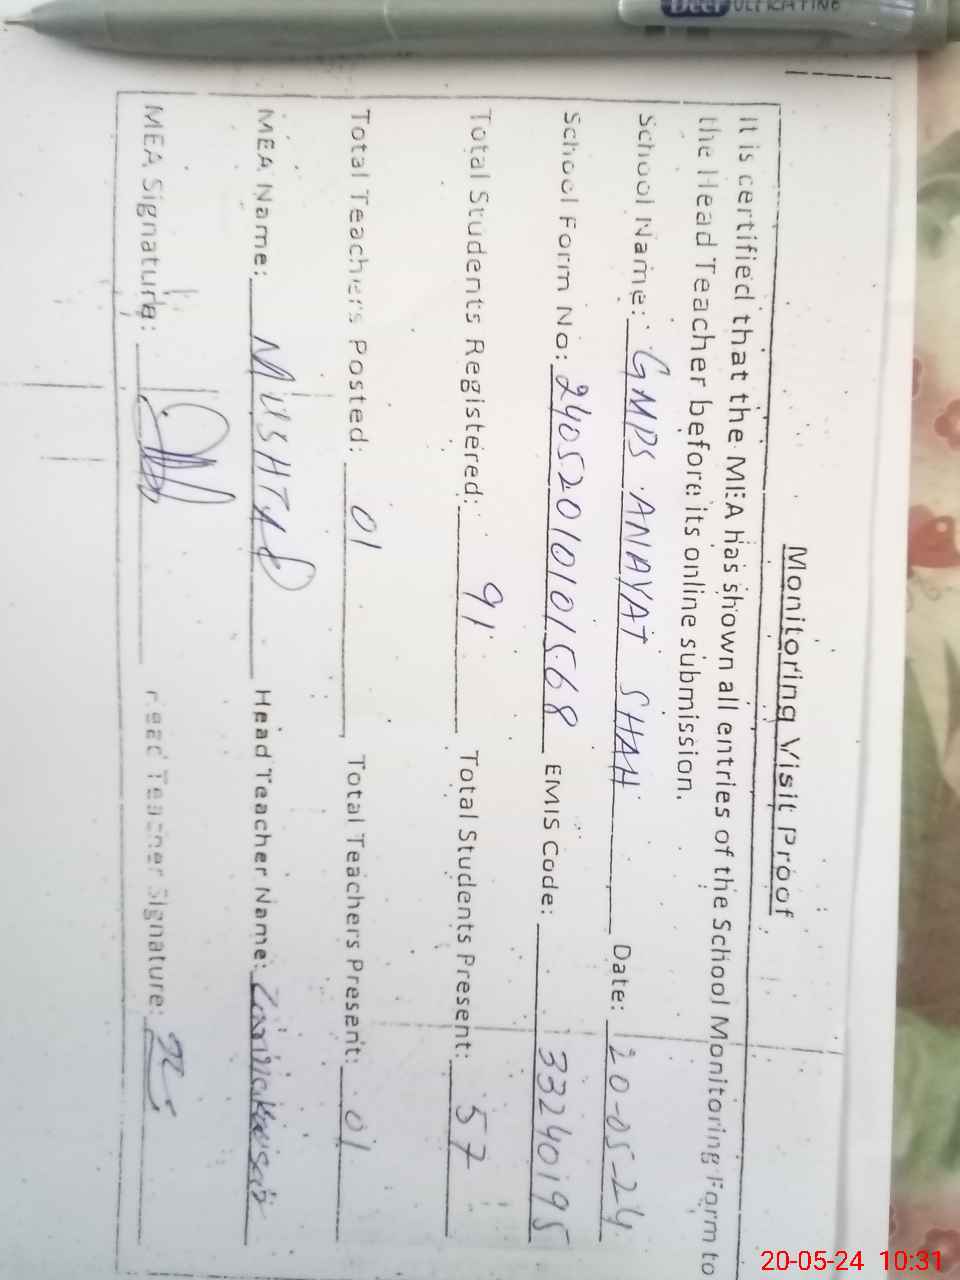 Monitoring Visit Proof
It is certified that the MEA has shown all entries of the School Monitoring Form to
the Head Teacher before its online submission.
School Name: GMPS ANAYAT SHAH Date: 20-05-24
School Form No: 24052010101568 EMIS Code: 33240195
Total Students Registered: 91 Total Students Present: 57
Total Teachers Posted: 01 Total Teachers Present: 01
MEA Name: MUSHTAQ Head Teacher Name:
MEA Signature: Head Teacher Signature:
Deer
20-05-24 10:31